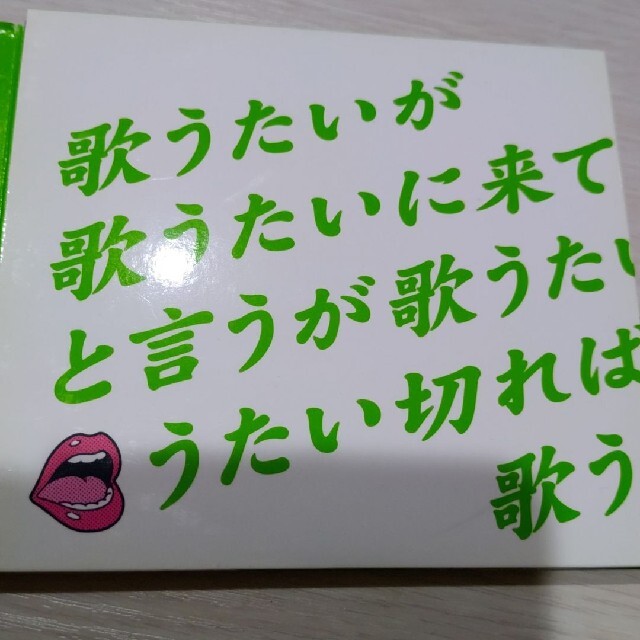 歌うたいが
歌うたいに来て
と言うが歌うたい
うたい切れば
歌う